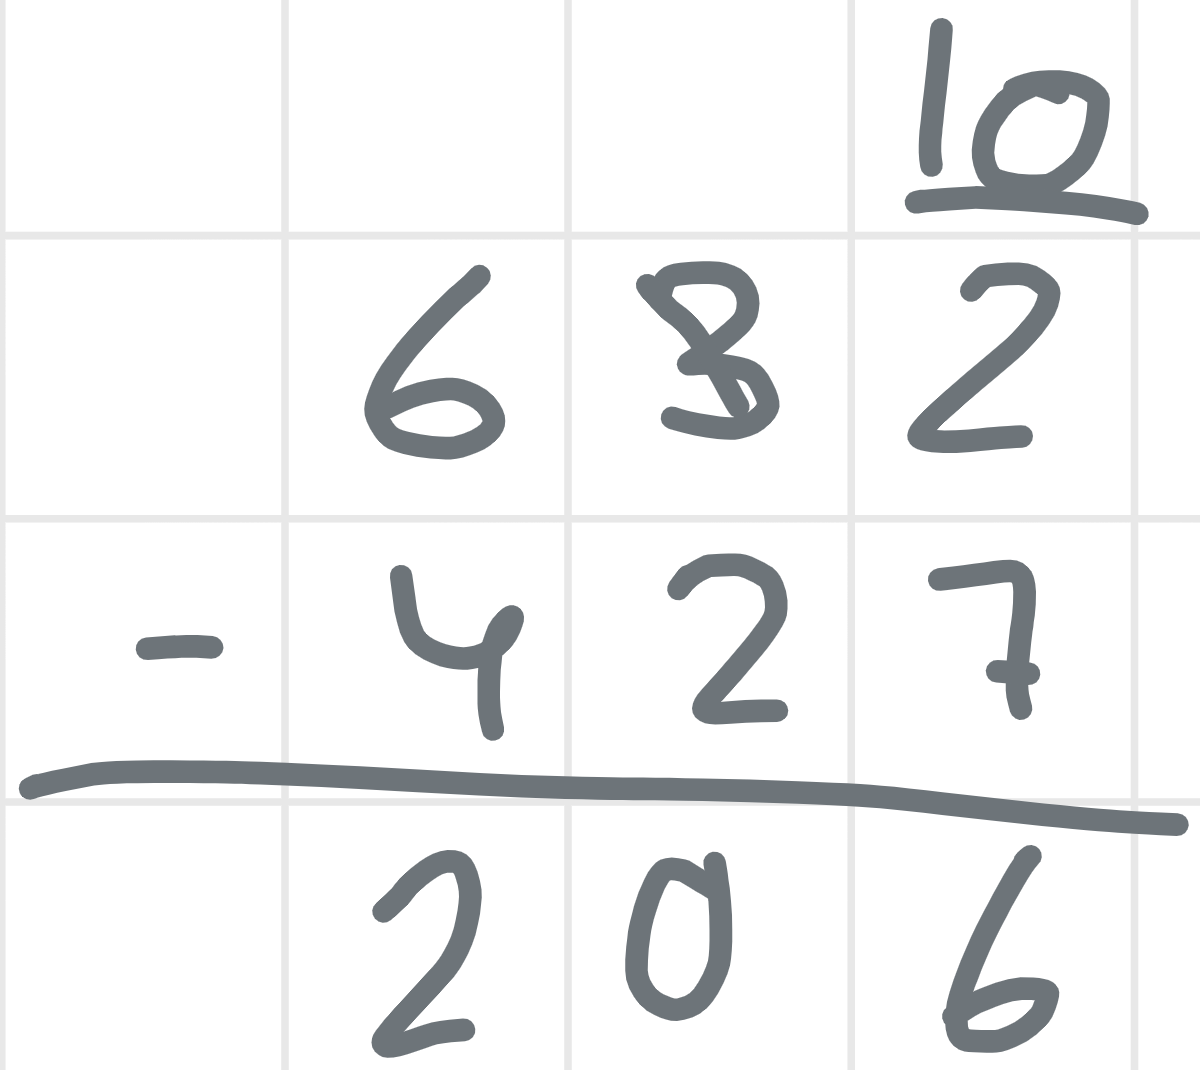 10
6 3 2
- 4 2 7
2 0 6